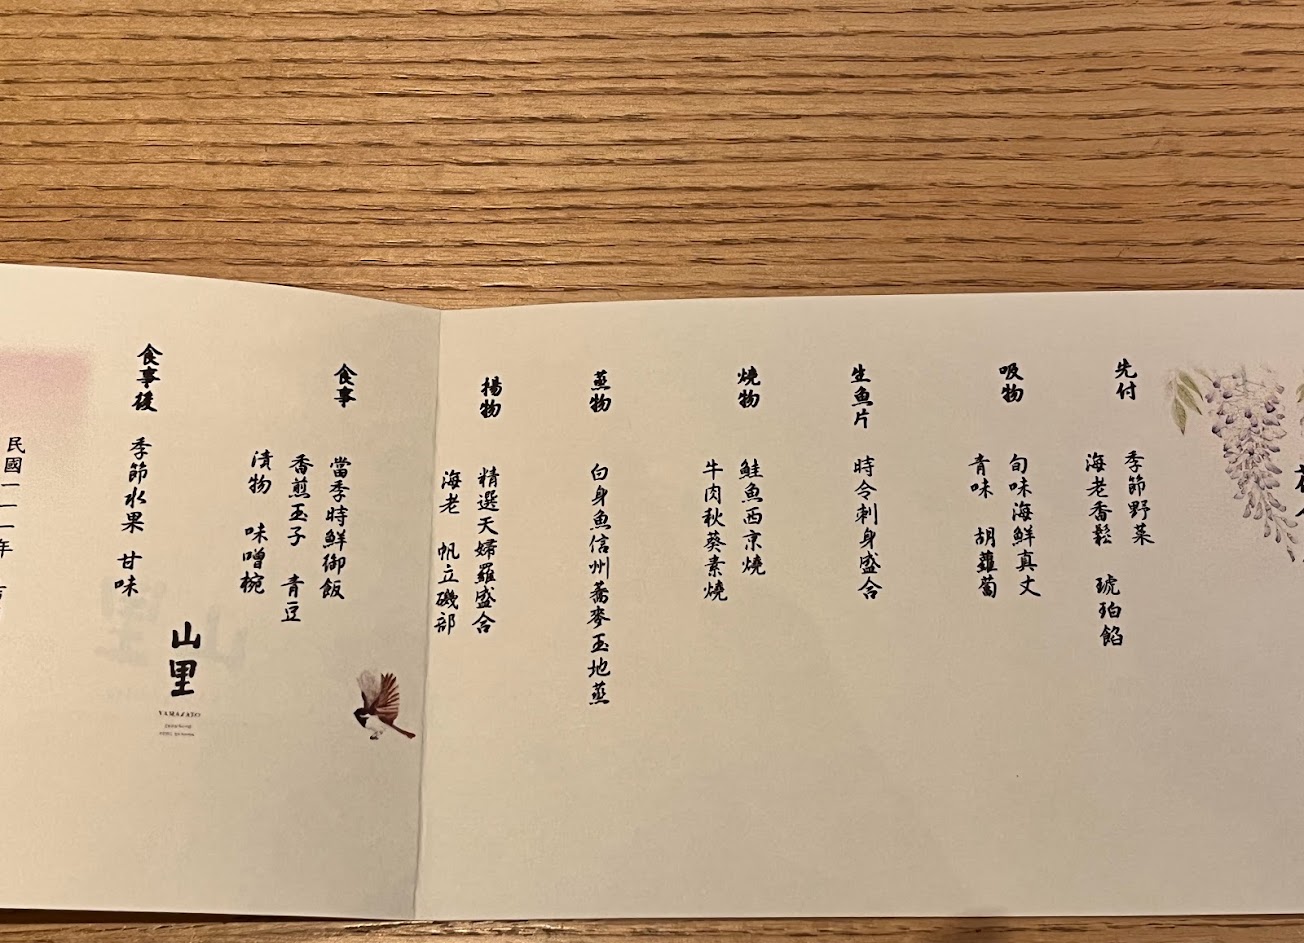 先付
季節野菜
海老香鬆 琥珀餡
吸物
旬味海鮮真丈
青味 胡蘿蔔
生魚片
時令刺身盛合
燒物
鮭魚西京燒
牛肉秋葵素燒
蒸物
白身魚信州蕎麥玉地蒸
揚物
精選天婦羅盛合
海老 帆立磯部
食事
當季時鮮御飯
香煎玉子 青豆
漬物 味噌椀
食事後
季節水果 甘味
山里
YAMAZATO
民國一一一年